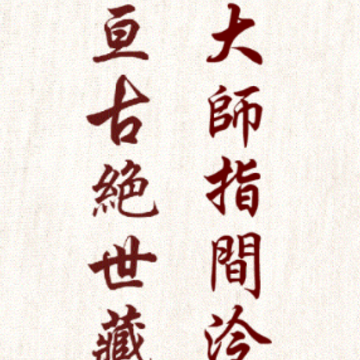 大師指間泠
亘古絕世藏